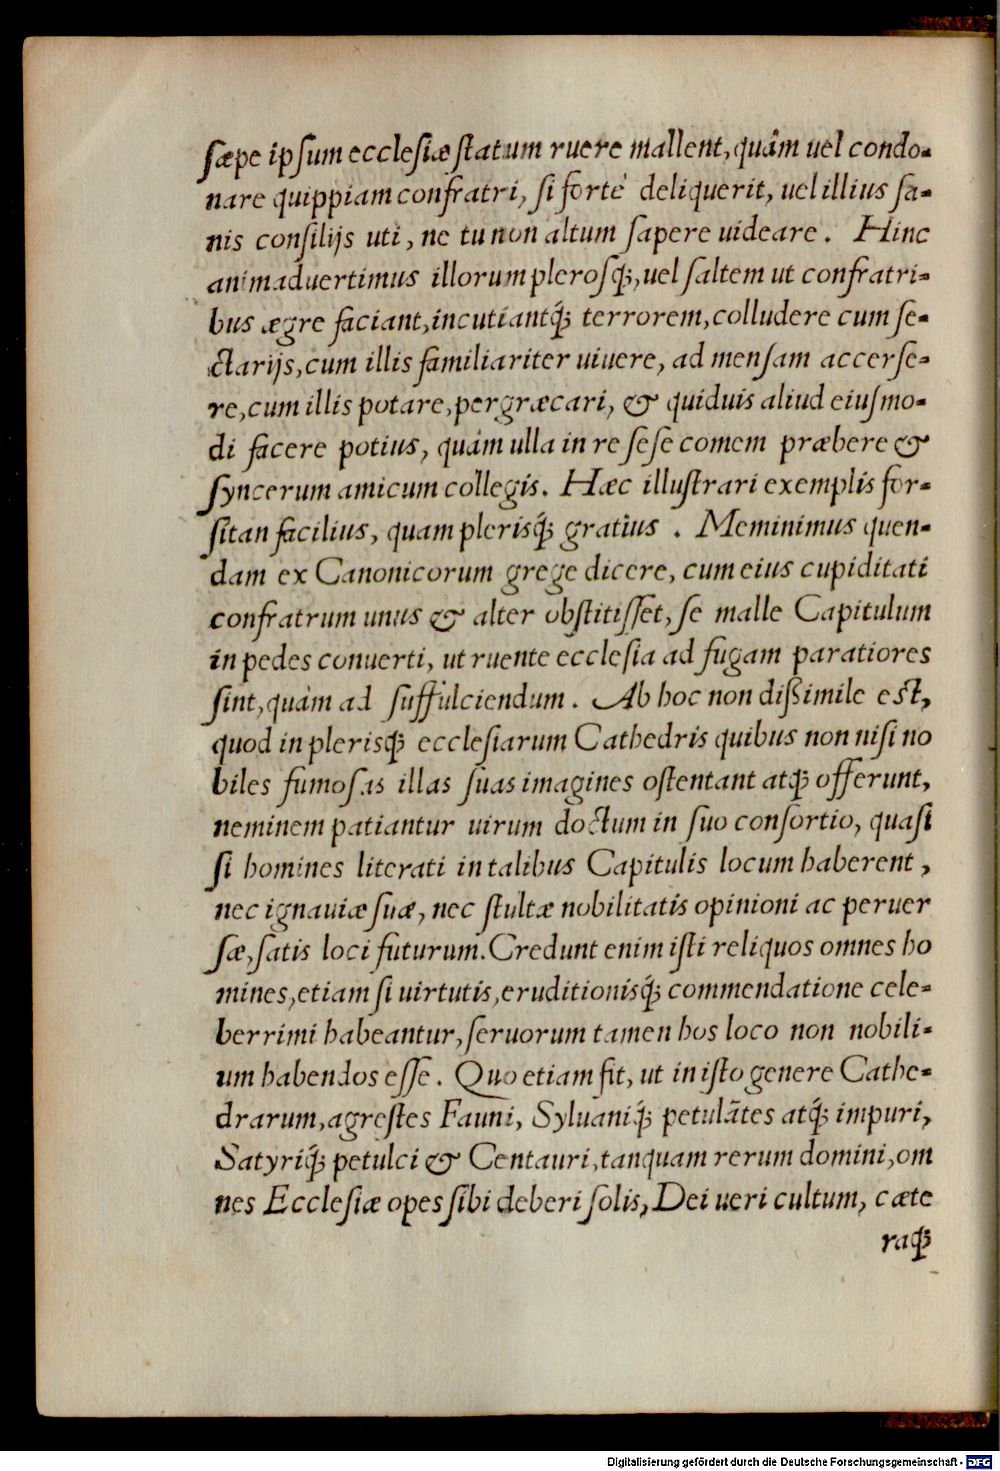 ſæpe ipſum eccleſiæ ſtatum ruere mallent, quâm uel condo-
nare quippiam confratri, ſi fortè deliquerit, uel illius ſa-
nis conſilijs uti, ne tu non altum ſapere uideare. Hinc
animaduertimus illorum pleroſq́;, uel ſaltem ut confratri-
bus ægre faciant, incutiantq́; terrorem, colludere cum ſe-
ctarijs, cum illis familiariter uiuere, ad menſam accerſe-
re, cum illis potare, pergræcari, & quiduis aliud eiuſmo-
di facere potius, quàm ulla in re ſeſe comem præbere &
ſyncerum amicum collegis. Hæc illuſtrari exemplis for-
ſitan facilius, quam pleriſq́; gratius. Meminimus quen-
dam ex Canonicorum grege dicere, cum eius cupiditati
confratrum unus & alter obſtitiſſet, ſe malle Capitulum
in pedes conuerti, ut ruente eccleſia ad fugam paratiores
ſint, quàm ad ſuffulciendum. Ab hoc non dißimile eſt,
quod in pleriſq́; eccleſiarum Cathedris quibus non niſi no
biles fumoſas illas ſuas imagines oſtentant atq; offerunt,
neminem patiantur uirum doctum in ſuo conſortio, quaſi
ſi homines literati in talibus Capitulis locum haberent,
nec ignauiæ ſuæ, nec ſtultæ nobilitatis opinioni ac peruer
ſæ, ſatis loci futurum. Credunt enim iſti reliquos omnes ho
mines, etiam ſi uirtutis, eruditionisq́; commendatione cele-
berrimi habeantur, ſeruorum tamen hos loco non nobili-
um habendos eſſe. Quo etiam fit, ut in iſto genere Cathe-
drarum, agreſtes Fauni, Syluaniq́; petulātes atq́; impuri,
Satyriq́; petulci & Centauri, tanquam rerum domini, om
nes Eccleſiæ opes ſibi deberi ſolis, Dei ueri cultum, cæte
raq́;
Digitalisierung gefördert durch die Deutsche Forschungsgemeinschaft - DFG